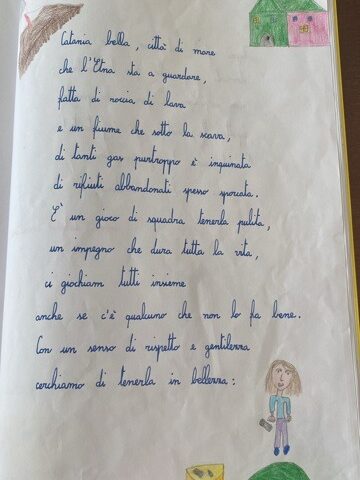 Catania bella, città di mare
che l'Etna sta a guardare,
fatta di roccia di lava
e un fiume che sotto la scava,
di tanti gas purtroppo è inquinata
di rifiuti abbandonati spesso sporcata.
È un gioco di squadra tenerla pulita,
un impegno che dura tutta la vita,
ci giochiam tutti insieme
anche se c'è qualcuno che non lo fa bene.
Con un senso di rispetto e gentilezza
cerchiamo di tenerla in bellezza: